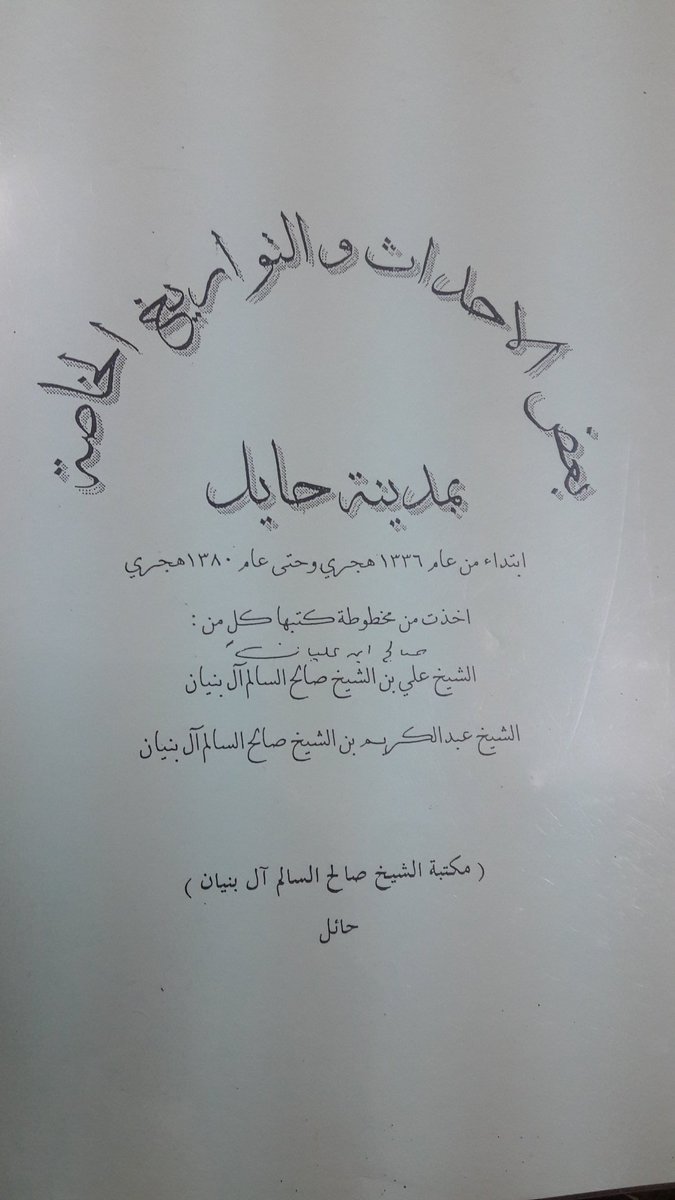 بعض الاحداث والتواريخ الخاصة
بمدينة حايل
ابتداء من عام ١٣٣٦ هجري وحتى عام ١٣٨٠ هجري
اخذت من مخطوطة كتبها كلٍ من :
صالح ابن عليان
الشيخ علي بن الشيخ صالح السالم آل بنيان
الشيخ عبدالكريم بن الشيخ صالح السالم آل بنيان
( مكتبة الشيخ صالح السالم آل بنيان )
حائل